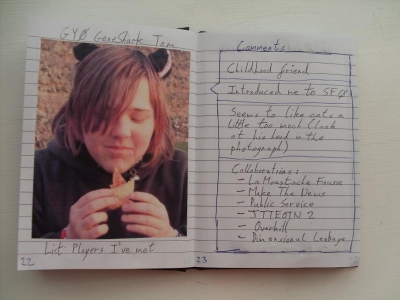 GYØ GeneShark Jam
List Players I've met
22
Comments
Childhood friend
Introduced me to SFØ
Seems to like cats a
little too much (look
at his head in the
photograph)
Collaborations:
- La Moustache Fausse
- Make The News
- Public Service
- JTTEOTN 2
- Overkill
- Dimensional Leakage
23